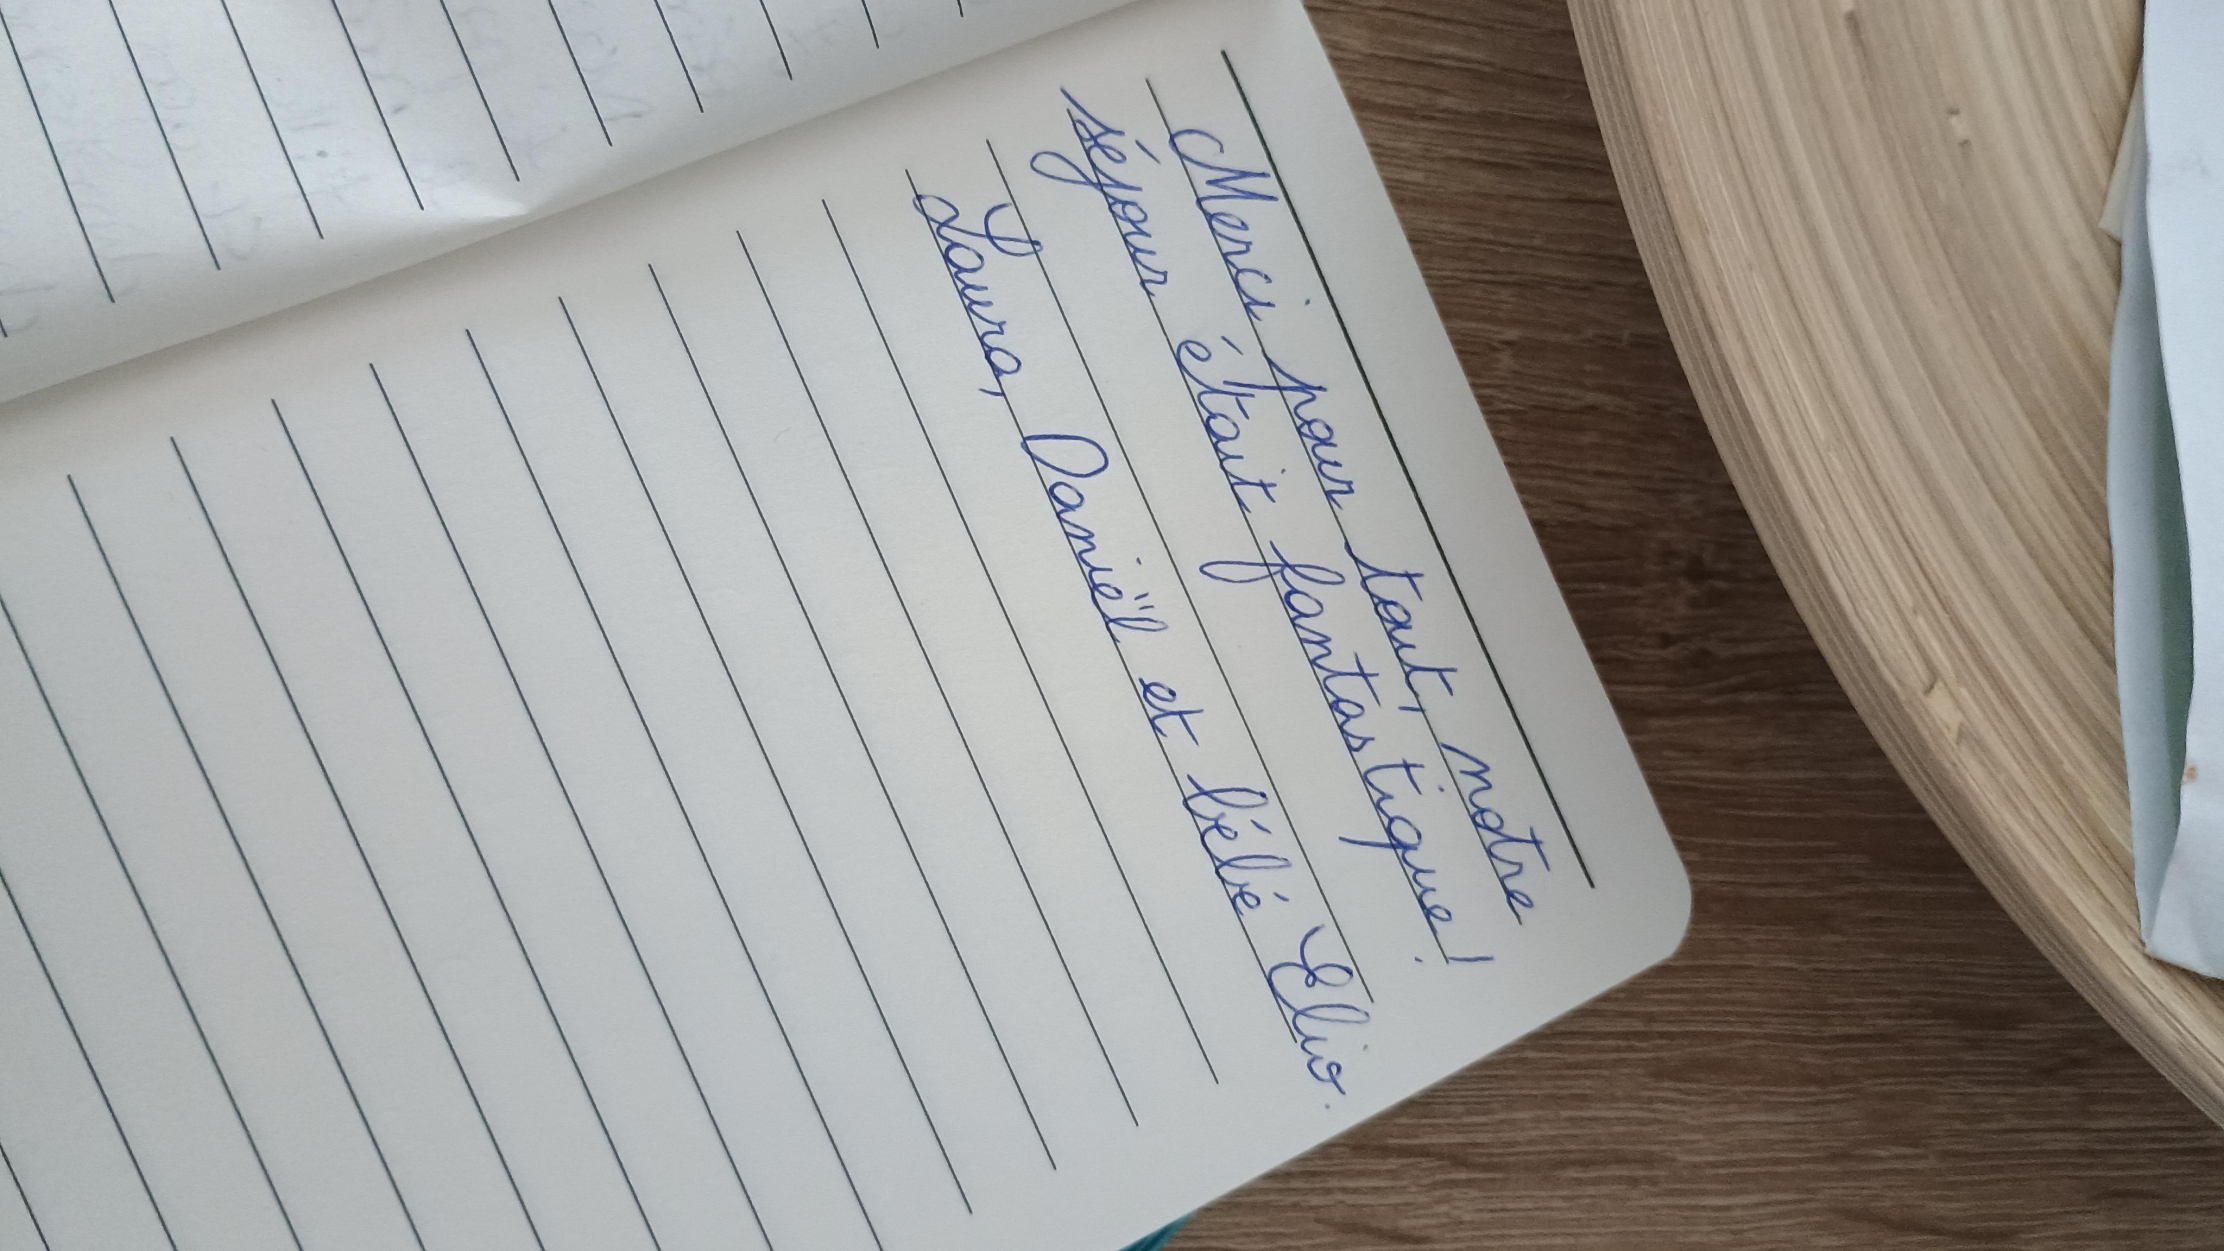 Merci pour tout, notre
séjour était fantastique !
Laura, Daniël et bébé Elio.